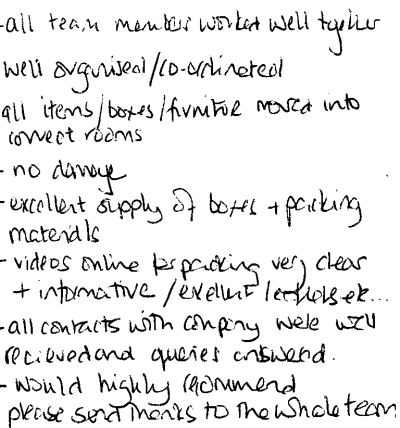 -all team members worked well together
well organised/co-ordinated
all items/boxes/furniture moved into
correct rooms
- no damage
-excellent supply of boxes + packing
materials
- videos online for packing very clear
+ informative / excellent etc...
-all contacts with company were well
recieved and queries answered.
- would highly recommend
please send thanks to the whole team